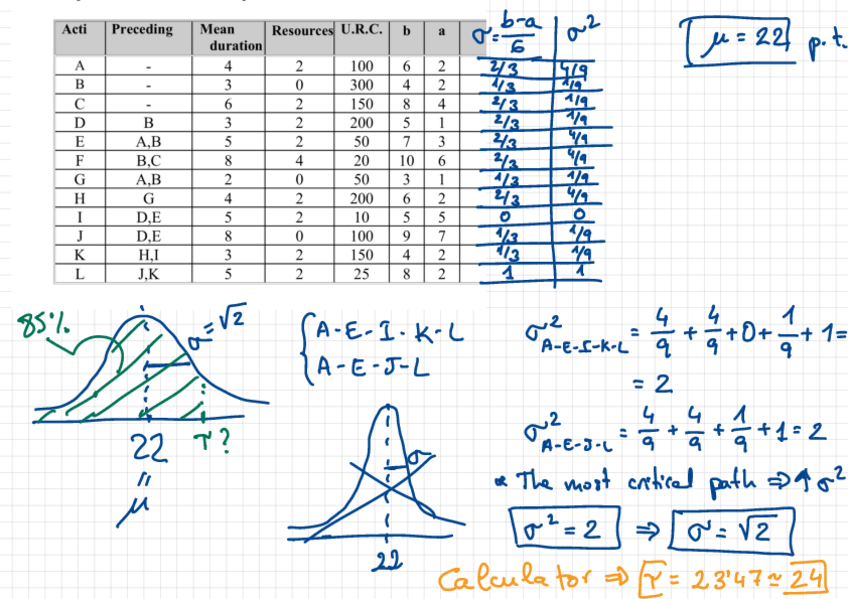 Acti Preceding Mean duration Resources U.R.C. b a σ=(b-a)/6 σ²
A - 4 2 100 6 2 2/3 4/9
B - 3 0 300 4 2 1/3 1/9
C - 6 2 150 8 4 2/3 1/9
D B 3 2 200 5 1 2/3 1/9
E A,B 5 2 50 7 3 2/3 4/9
F B,C 8 4 20 10 6 2/3 4/9
G A,B 2 0 50 3 1 1/3 1/9
H G 4 2 200 6 2 2/3 4/9
I D,E 5 2 10 5 5 0 0
J D,E 8 0 100 9 7 1/3 1/9
K H,I 3 2 150 4 2 1/3 1/9
L J,K 5 2 25 8 2 1 1
μ = 22 p.t.
85%
σ=√2
22 τ?
=
μ
A-E-I-K-L
A-E-J-L
σ
22
σ² A-E-I-K-L = 4/9 + 4/9 + 0 + 1/9 + 1 =
= 2
σ² A-E-J-L = 4/9 + 4/9 + 1/9 + 1 = 2
* The most critical path ⇒ ↑ σ²
σ² = 2 ⇒ σ = √2
Calculator ⇒ τ = 23'47 ≃ 24